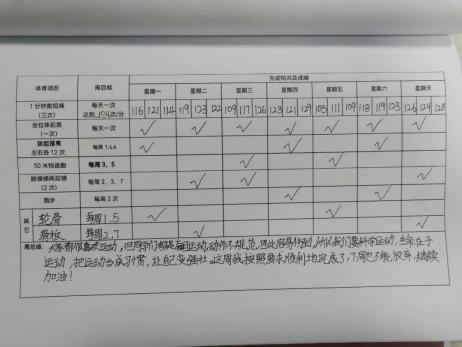 体育项目 周目标 完成情况及成绩
星期一 星期二 星期三 星期四 星期五 星期六 星期天
1分钟跳短绳（三次） 每天一次 达到 次/分 116 121 114 119 123 122 109 117 126 123 121 129 105 111 109 118 119 123 126 124 128
坐位体前屈（一次） 每天一次 ✓ ✓ ✓ ✓ ✓ ✓ ✓
左右各12次 每周1.4.6 ✓ ✓ ✓
50米快速跑 每周3、5 ✓ ✓
（2次） 每周2、3、7 ✓ ✓ ✓
跑步 每周2次 ✓ ✓
其它 轮滑 每周1.5 ✓ ✓
滑板 每周2.7 ✓ ✓
周总结：大家都很喜欢运动，但同学们 运动动作不规范， 所以我们要科学运动，生命在于
运动，把运动当成习惯，让自己变强壮。这周我按照要求顺利地完成了，下周 不能放弃，继续
加油！